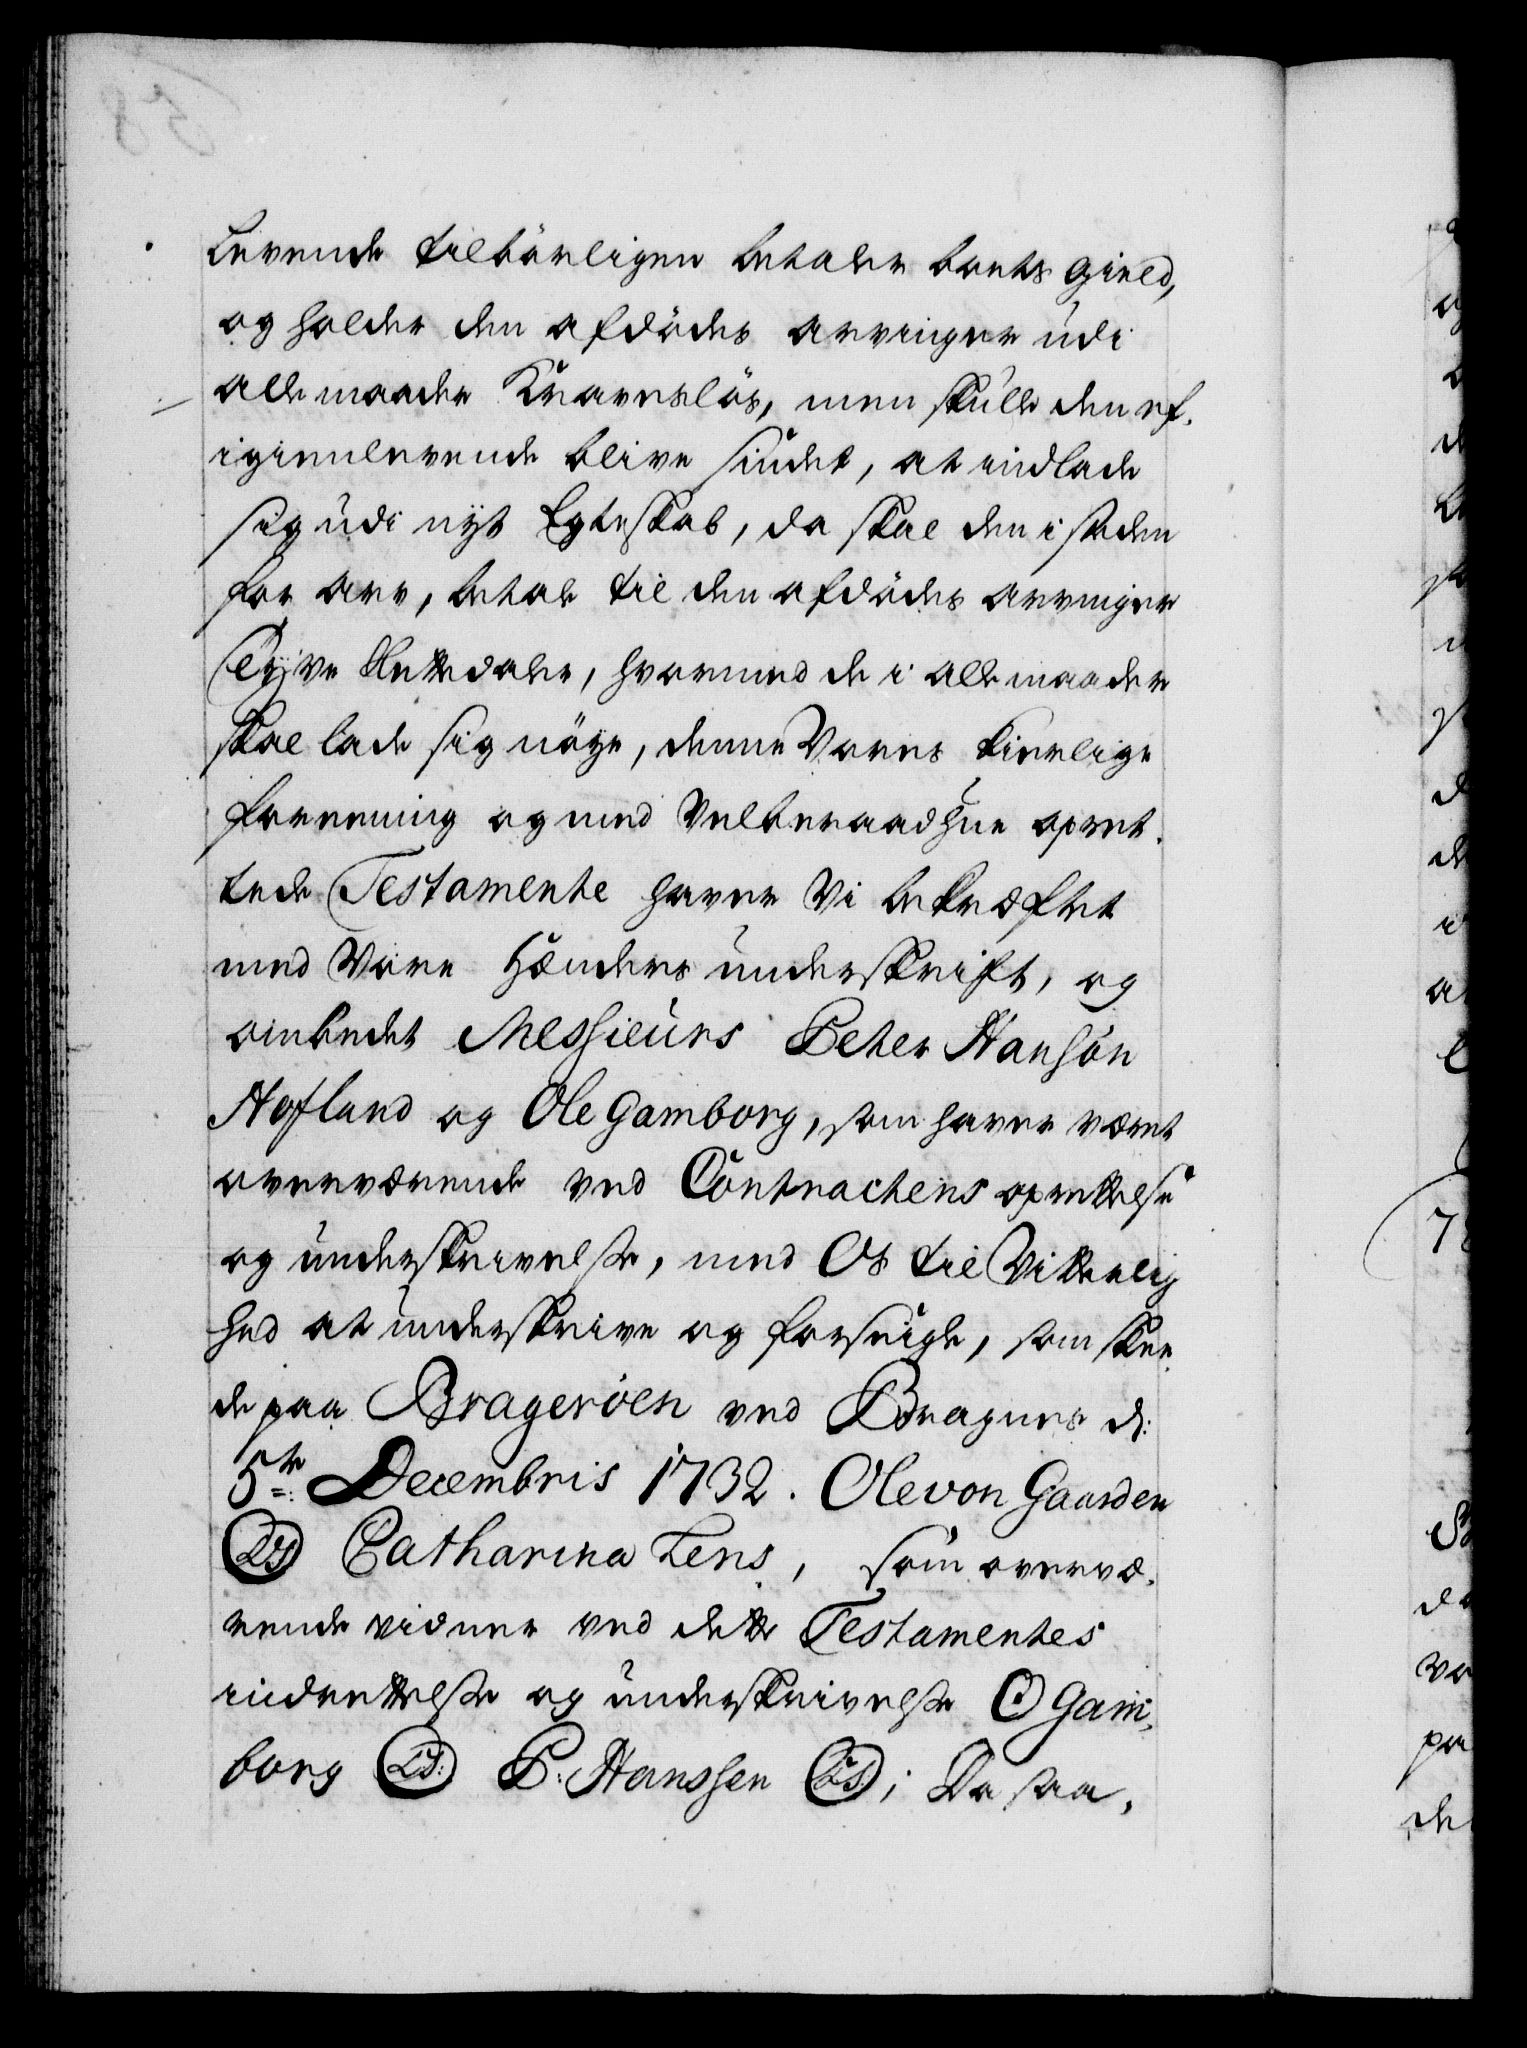 levende tilbörligen betaler boets Gield,
og holder den afdödes arvinger udi
alle maader Kravesløs, men skulle den ef-
igienlevende blive sindet, at indlade
sig udi nyt Egteskab, da skal den i steden
for arv, betale til den afdödes arvinger
Tyve Slettedaler, hvormed de i alle maader
skal lade sig nöye, denne Vores kierlige
foreening og med Velberaad Hue opret-
tede Testamente haver Vi bekræftet
med Vore Hænders underskrift, og
ombedet Messieurs Peter Hansön
Hofland og Ole Gamborg, som haver været
overværende ved Contractens oprettelse
og underskrivelse, med Os til Vitterlig
hed at underskrive og forseigle, som skee-
de paa Brageröen ved Bragnes d:
5te Decembris 1732. Ole von Gaarden
(LS) Catharina Lens, som overvæ-
rende vidner ved dette Testamentes
indrettelse og underskrivelse O Gam-
borg (LS:) P: Hanssen (LS:); Da saa-